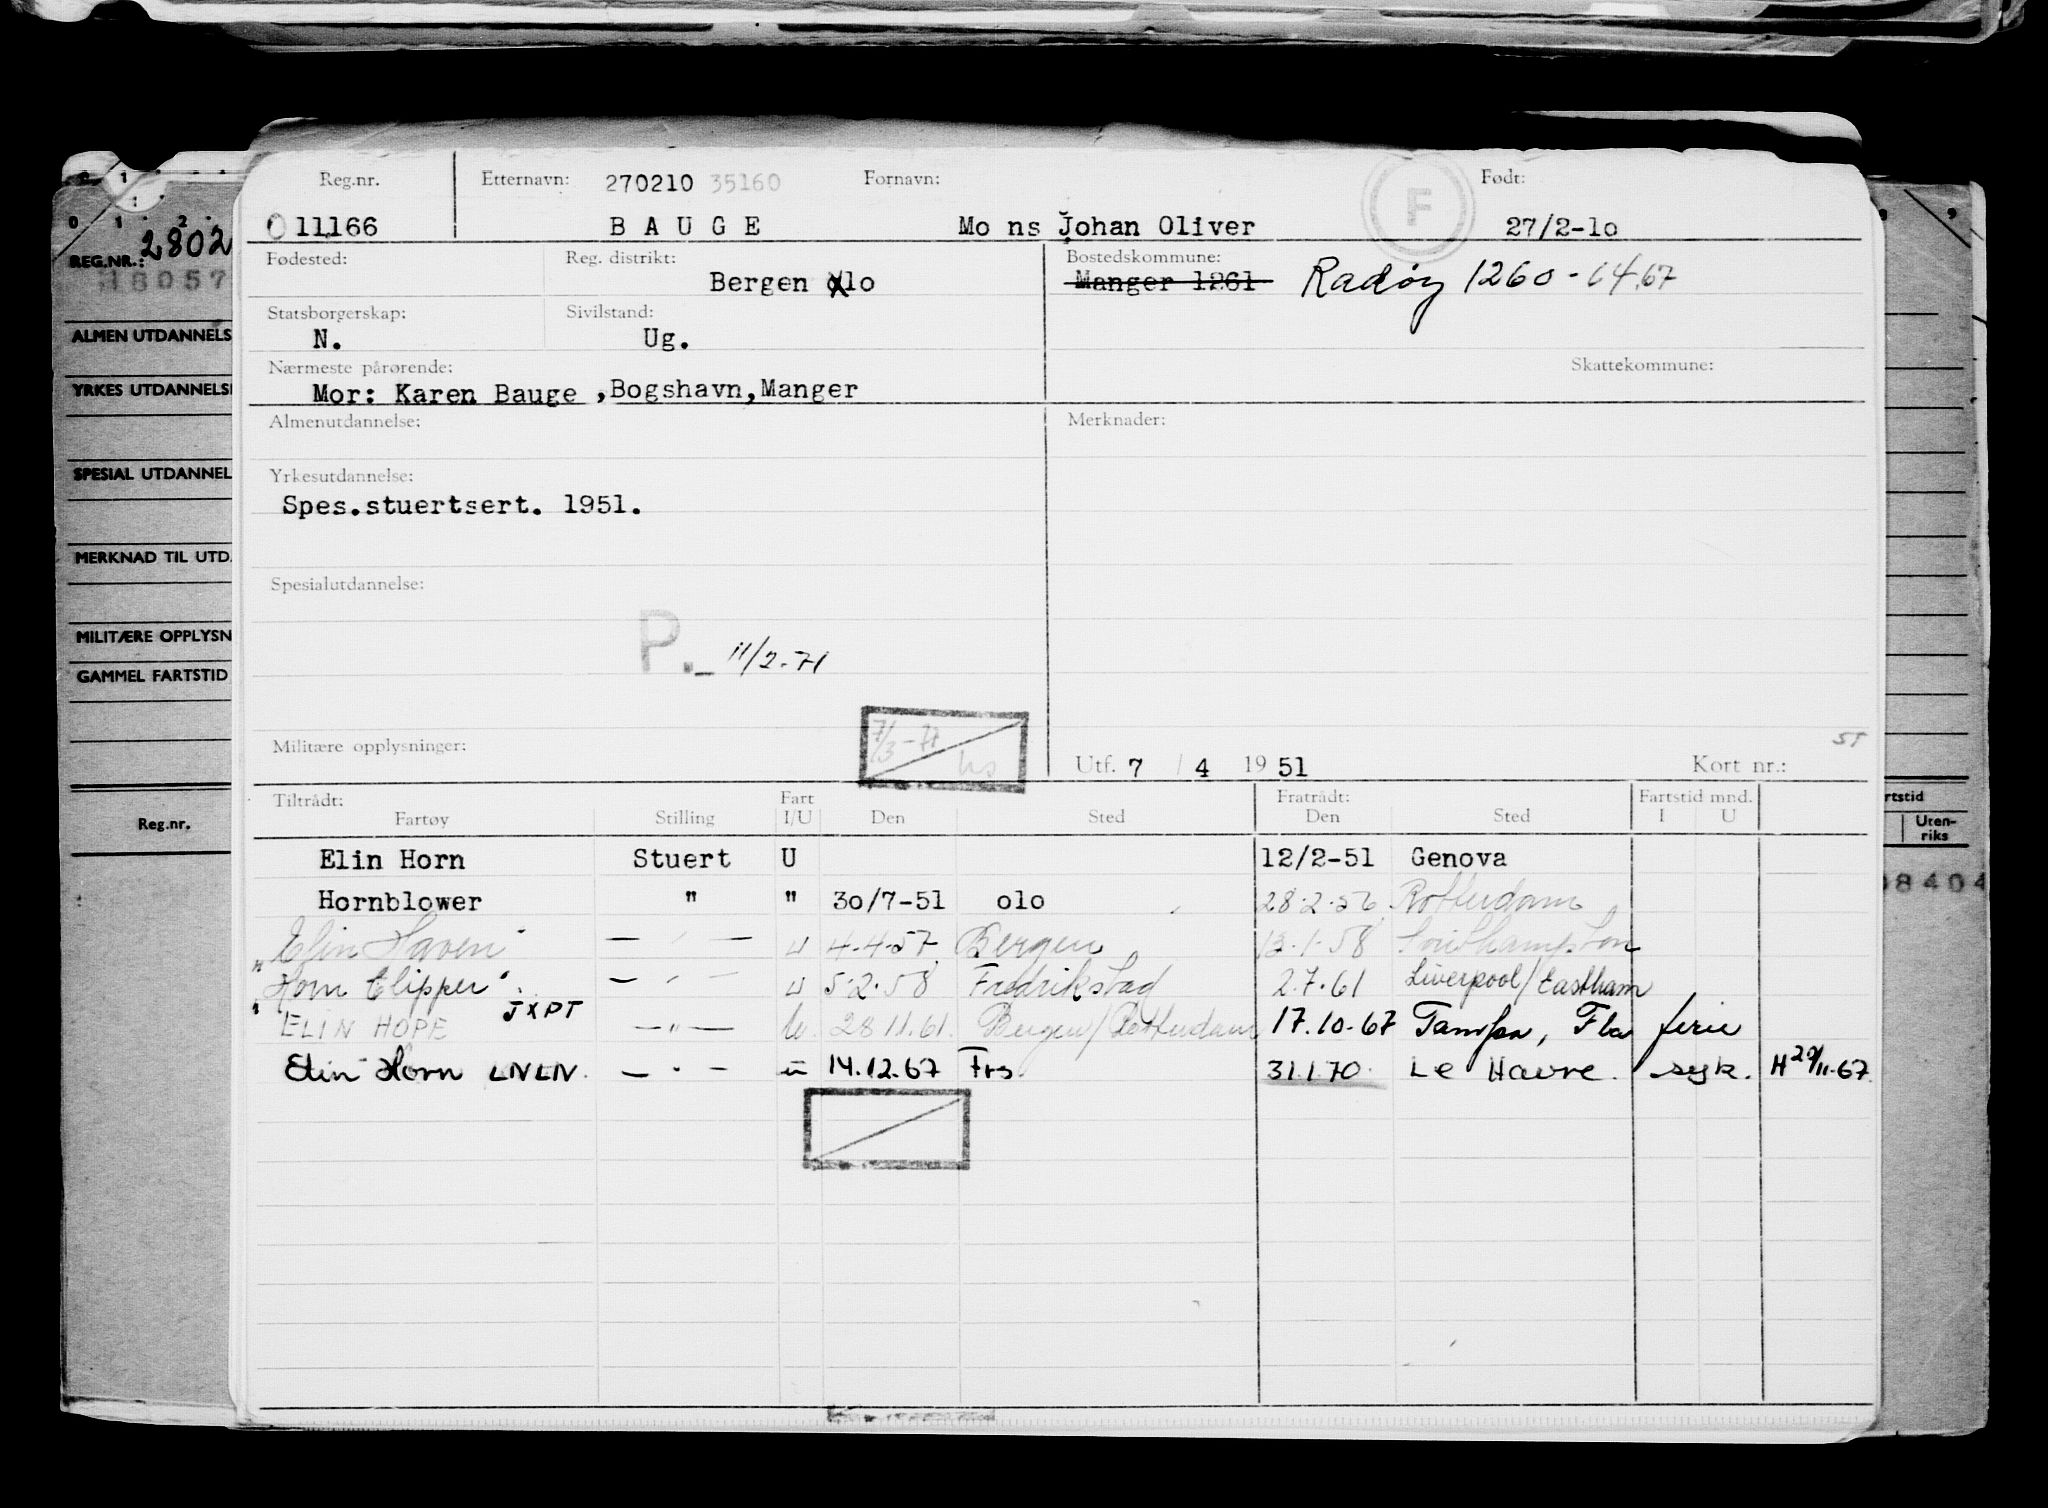 Reg.nr. Etternavn: 270210 35160 Fornavn: F Født:
011166 BAUGE Mo ns Johan Oliver 27/2-lo
Fødested: Reg. distrikt: Bostedskommune:
Bergen olo Manger 1261 Radøy 1260-1/4.67
Statsborgerskap: Sivilstand:
N. Ug.
Nærmeste pårørende: Skattekommune:
Mor: Karen Bauge ,Bogshavn,Manger
Almenutdannelse: Merknader:
Yrkesutdannelse:
Spes.stuertsert. 1951.
Spesialutdannelse:
P._ 11/2-71
7/3-71
hs
ST
Militære opplysninger: Utf. 7 / 4 19 51 Kort nr.:
Tiltrådt: Fart Fratrådt: Fartstid mnd.
Fartøy Stilling I/U Den Sted Den Sted I U
Elin Horn Stuert U 12/2-51 Genova
Hornblower " " 30/7-51 olo 28.2.56 Rotterdam
Elin Haven" — " — u 4.4.57 Bergen 13.1.58 Southampton
"Horn Clipper" — " — u 5.2.58 Fredrikstad 2.7.61 Liverpool/Eastham
"ELIN HOPE JXPT — " — u. 28.11.61. Bergen/Rotterdam 17.10.67 Tampa, Fla ferie
Elin Horn LNLN. — " — u 14.12.67 Frs. 31.1.70 Le Havre. syk. H 29/11-67.
0 1 2
REG.NR.: 2802
18057
ALMEN UTDANNELS
YRKES UTDANNELS
SPESIAL UTDANNEL
MERKNAD TIL UTD.
MILITÆRE OPPLYSN
GAMMEL FARTSTID
Reg.nr.
9
rtstid
Uten-
riks
8404